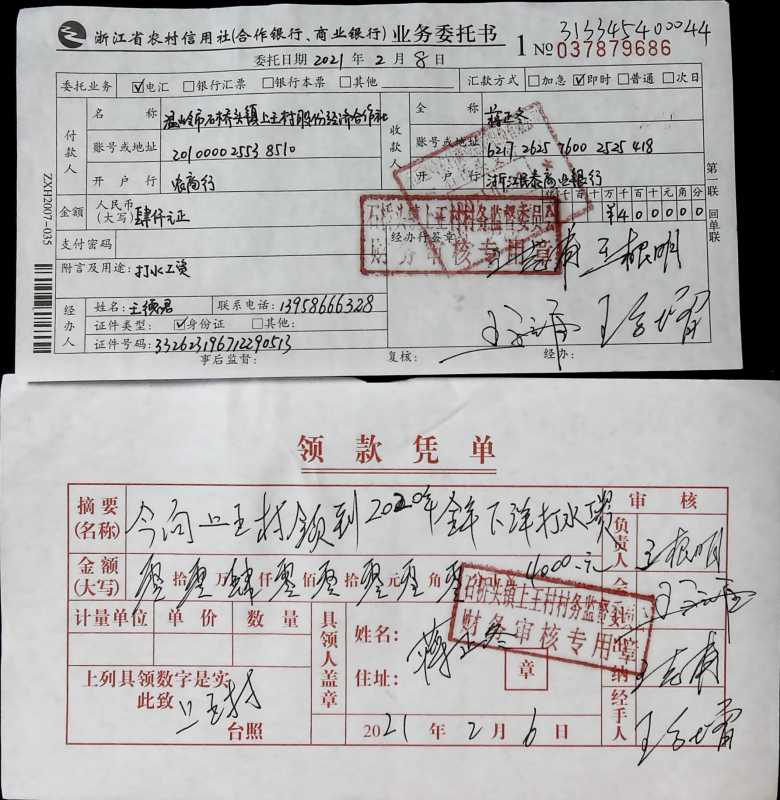 浙江省农村信用社(合作银行、商业银行)业务委托书
313345400044
1 №037879686
委托日期 2021 年 2 月 8 日
委托业务 ☑电汇 □银行汇票 □银行本票 □其他 汇款方式 □加急 ☑即时 □普通 □次日
付款人
名 称 温岭市石桥头镇上王村股份经济合作社
账号或地址 201000025538510
开户行 农商行
收款人
全 称 蒋正冬
账号或地址 6217 2625 7600 2525 418
开户行 浙江民泰商业银行
金额 人民币(大写) 肆仟元正
千百十万千百十元角分
¥400000
支付密码
经办行签章
石桥头镇上王村村务监督委员会
财务审核专用章
王根明
附言及用途: 打水工资
经办人
姓名: 王德君 联系电话: 13958666328
证件类型: ☑身份证 □其他:
证件号码: 332623196712290513
事后监督: 复核: 经办:
第一联 回单联
ZXH2007-035
领款凭单
摘要(名称) 今向上王村领到2020年全年下洋打水工资
审核
负责人 王根明
金额(大写) 零拾零万肆仟零佰零拾零元零角零 4000.元
石桥头镇上王村村务监督
财务审核专用章
计量单位 单价 数量
具领人盖章
姓名: 蒋正冬
住址:
章
上列具领数字是实
此致 上王村
台照
2021 年 2 月 6 日
经手人